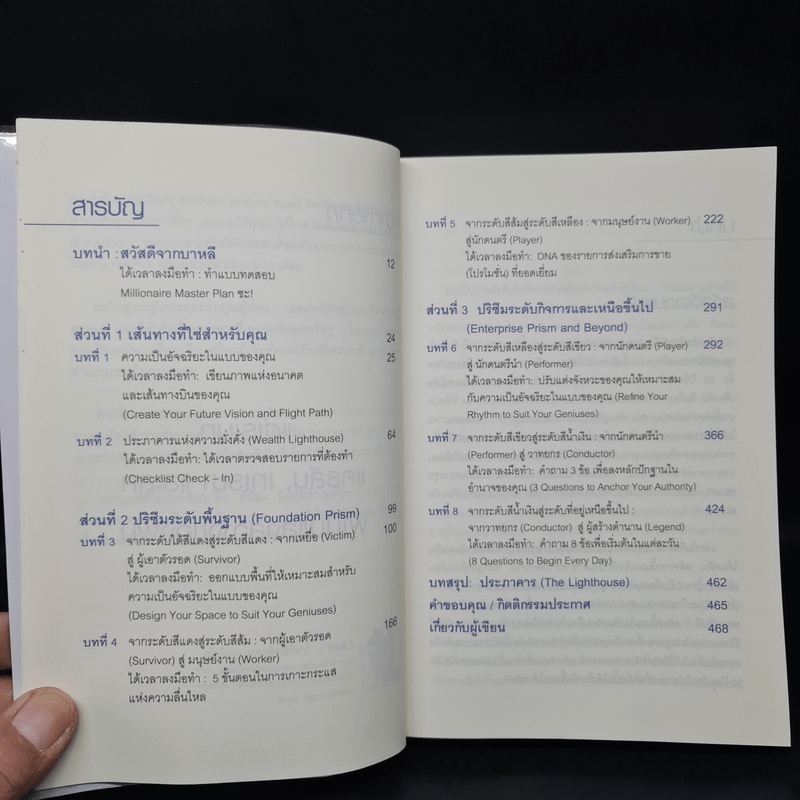 สารบัญ
บทนำ : สวัสดีจากบาหลี 12
ได้เวลาลงมือทำ : ทำแบบทดสอบ
Millionaire Master Plan ซะ!
ส่วนที่ 1 เส้นทางที่ใช่สำหรับคุณ 24
บทที่ 1 ความเป็นอัจฉริยะในแบบของคุณ 25
ได้เวลาลงมือทำ: เขียนภาพแห่งอนาคต
และเส้นทางบินของคุณ
(Create Your Future Vision and Flight Path)
บทที่ 2 ประภาคารแห่งความมั่งคั่ง (Wealth Lighthouse) 64
ได้เวลาลงมือทำ: ได้เวลาตรวจสอบรายการที่ต้องทำ
(Checklist Check – In)
ส่วนที่ 2 ปริซึมระดับพื้นฐาน (Foundation Prism) 99
บทที่ 3 จากระดับใต้สีแดงสู่ระดับสีแดง : จากเหยื่อ (Victim) 100
สู่ ผู้เอาตัวรอด (Survivor)
ได้เวลาลงมือทำ: ออกแบบพื้นที่ให้เหมาะสมสำหรับ
ความเป็นอัจฉริยะในแบบของคุณ
(Design Your Space to Suit Your Geniuses)
บทที่ 4 จากระดับสีแดงสู่ระดับสีส้ม : จากผู้เอาตัวรอด 166
(Survivor) สู่ มนุษย์งาน (Worker)
ได้เวลาลงมือทำ : 5 ขั้นตอนในการเกาะกระแส
แห่งความลื่นไหล
บทที่ 5 จากระดับสีส้มสู่ระดับสีเหลือง : จากมนุษย์งาน (Worker) 222
สู่นักดนตรี (Player)
ได้เวลาลงมือทำ: DNA ของรายการส่งเสริมการขาย
(โปรโมชั่น) ที่ยอดเยี่ยม
ส่วนที่ 3 ปริซึมระดับกิจการและเหนือขึ้นไป 291
(Enterprise Prism and Beyond)
บทที่ 6 จากระดับสีเหลืองสู่ระดับสีเขียว : จากนักดนตรี (Player) 292
สู่ นักดนตรีนำ (Performer)
ได้เวลาลงมือทำ: ปรับแต่งจังหวะของคุณให้เหมาะสม
กับความเป็นอัจฉริยะในแบบของคุณ (Refine Your
Rhythm to Suit Your Geniuses)
บทที่ 7 จากระดับสีเขียวสู่ระดับสีน้ำเงิน : จากนักดนตรีนำ 366
(Performer) สู่ วาทยกร (Conductor)
ได้เวลาลงมือทำ : คำถาม 3 ข้อ เพื่อลงหลักปักฐานใน
อำนาจของคุณ (3 Questions to Anchor Your Authority)
บทที่ 8 จากระดับสีน้ำเงินสู่ระดับที่อยู่เหนือขึ้นไป : 424
จากวาทยกร (Conductor) สู่ ผู้สร้างตำนาน (Legend)
ได้เวลาลงมือทำ : คำถาม 8 ข้อเพื่อเริ่มต้นในแต่ละวัน
(8 Questions to Begin Every Day)
บทสรุป: ประภาคาร (The Lighthouse) 462
คำขอบคุณ / กิตติกรรมประกาศ 465
เกี่ยวกับผู้เขียน 468